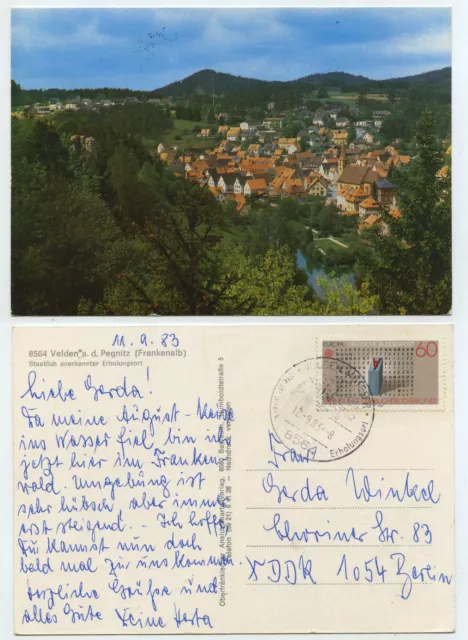 11.9.83
8564 Velden a. d. Pegnitz (Frankenalb)
Staatlich anerkannter Erholungsort
Liebe Gerda!
Da meine August-Reise
ins Wasser fiel, bin ich
jetzt hier im Franken
wald. Umgebung ist
sehr hübsch, aber immer
erst steigend. - Ich hoffe
Du kannst nun doch
bald mal zu uns kommen
Herzliche Grüße und
alles Gute Deine Herta
EUROPA
60
DEUTSCHE BUNDESPOST
8564
Erholungsort
Frau
Gerda Winkel
Str. 83
DDR 1054 Berlin